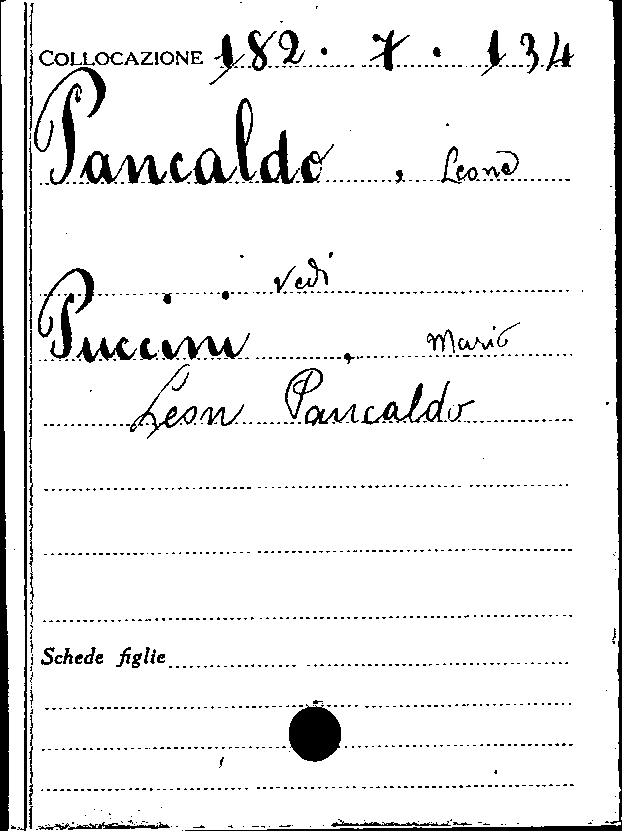 COLLOCAZIONE 182. 7. 134
Pancaldo, Leone
vedi
Puccini, Mario
Leon Pancaldo
Schede figlie